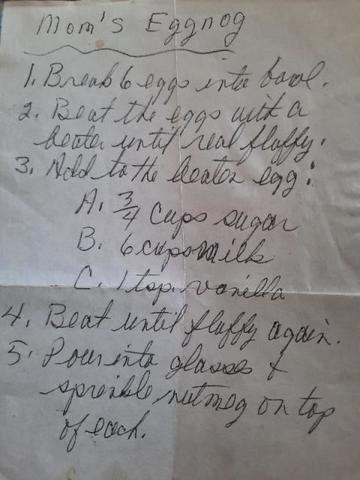 Mom's Eggnog
1. Break 6 eggs into bowl.
2. Beat the eggs with a
beater until real fluffy.
3. Add to the beaten egg:
A. 3/4 cups sugar
B. 6 cups milk
C. 1 tsp. vanilla
4. Beat until fluffy again.
5. Pour into glasses &
sprinkle nutmeg on top
of each.